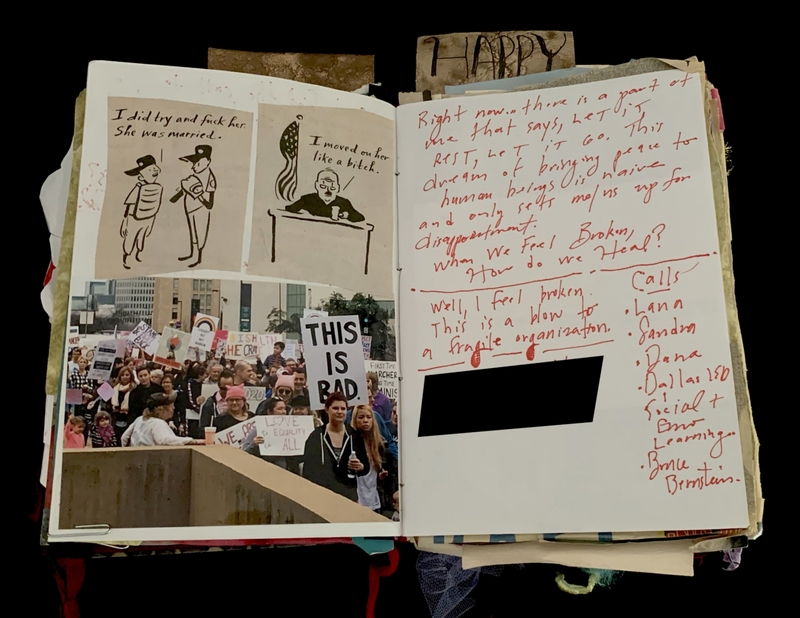 HAPPY
I did try and fuck her.
She was married.
I moved on her
like a bitch.
THIS
IS
BAD.
LOVE
EQUALITY
ALL
WE
Right now... there is a part of
me that says, LET iT
REST, LET iT GO. This
dream of bringing peace to
human beings is naive
and only sets me/us up for
disappointment.
When We Feel Broken,
How do we Heal?
Well, I feel broken.
This is a blow to
a fragile organization.
Calls
• Lana
• Sandra
• Dana
• Dallas ISD
Social +
Emo
Learning.
• Bruce
Bernstein.